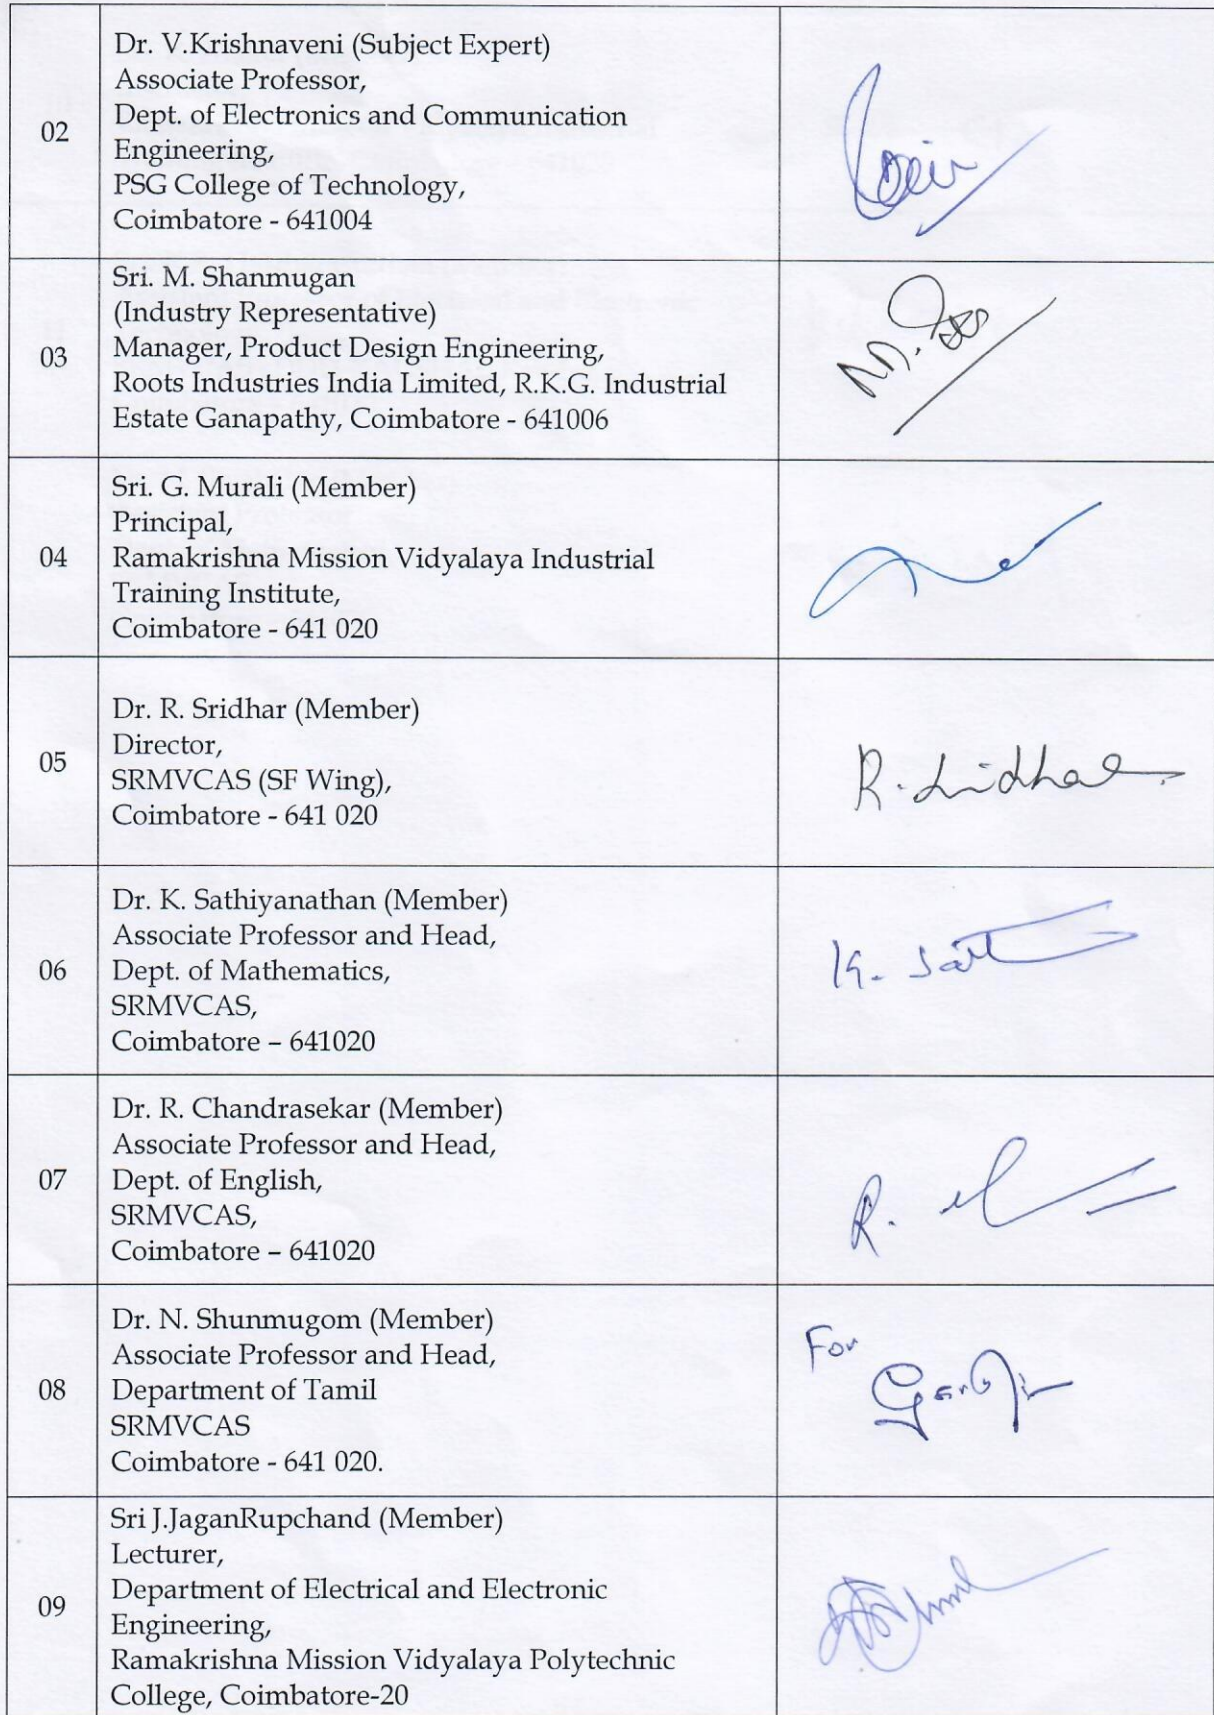 02
Dr. V.Krishnaveni (Subject Expert)
Associate Professor,
Dept. of Electronics and Communication
Engineering,
PSG College of Technology,
Coimbatore - 641004
03
Sri. M. Shanmugan
(Industry Representative)
Manager, Product Design Engineering,
Roots Industries India Limited, R.K.G. Industrial
Estate Ganapathy, Coimbatore - 641006
04
Sri. G. Murali (Member)
Principal,
Ramakrishna Mission Vidyalaya Industrial
Training Institute,
Coimbatore - 641 020
05
Dr. R. Sridhar (Member)
Director,
SRMVCAS (SF Wing),
Coimbatore - 641 020
R. Sridhar
06
Dr. K. Sathiyanathan (Member)
Associate Professor and Head,
Dept. of Mathematics,
SRMVCAS,
Coimbatore – 641020
07
Dr. R. Chandrasekar (Member)
Associate Professor and Head,
Dept. of English,
SRMVCAS,
Coimbatore – 641020
08
Dr. N. Shunmugom (Member)
Associate Professor and Head,
Department of Tamil
SRMVCAS
Coimbatore - 641 020.
For
09
Sri J.JaganRupchand (Member)
Lecturer,
Department of Electrical and Electronic
Engineering,
Ramakrishna Mission Vidyalaya Polytechnic
College, Coimbatore-20